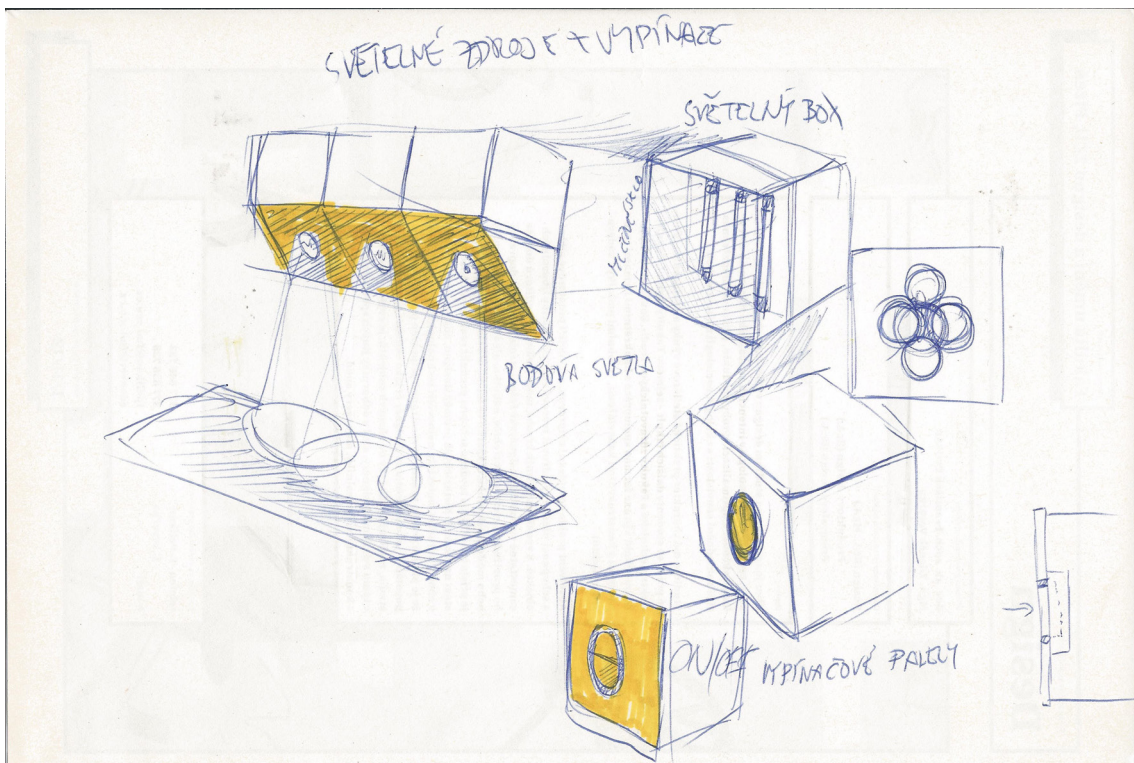 SVĚTELNÉ ZDROJE + VYPÍNAČE
SVĚTELNÝ BOX
MLÉČNÉ SKLO
BODOVÁ SVĚTLA
ON/OFF
VYPÍNAČOVÉ PANELY